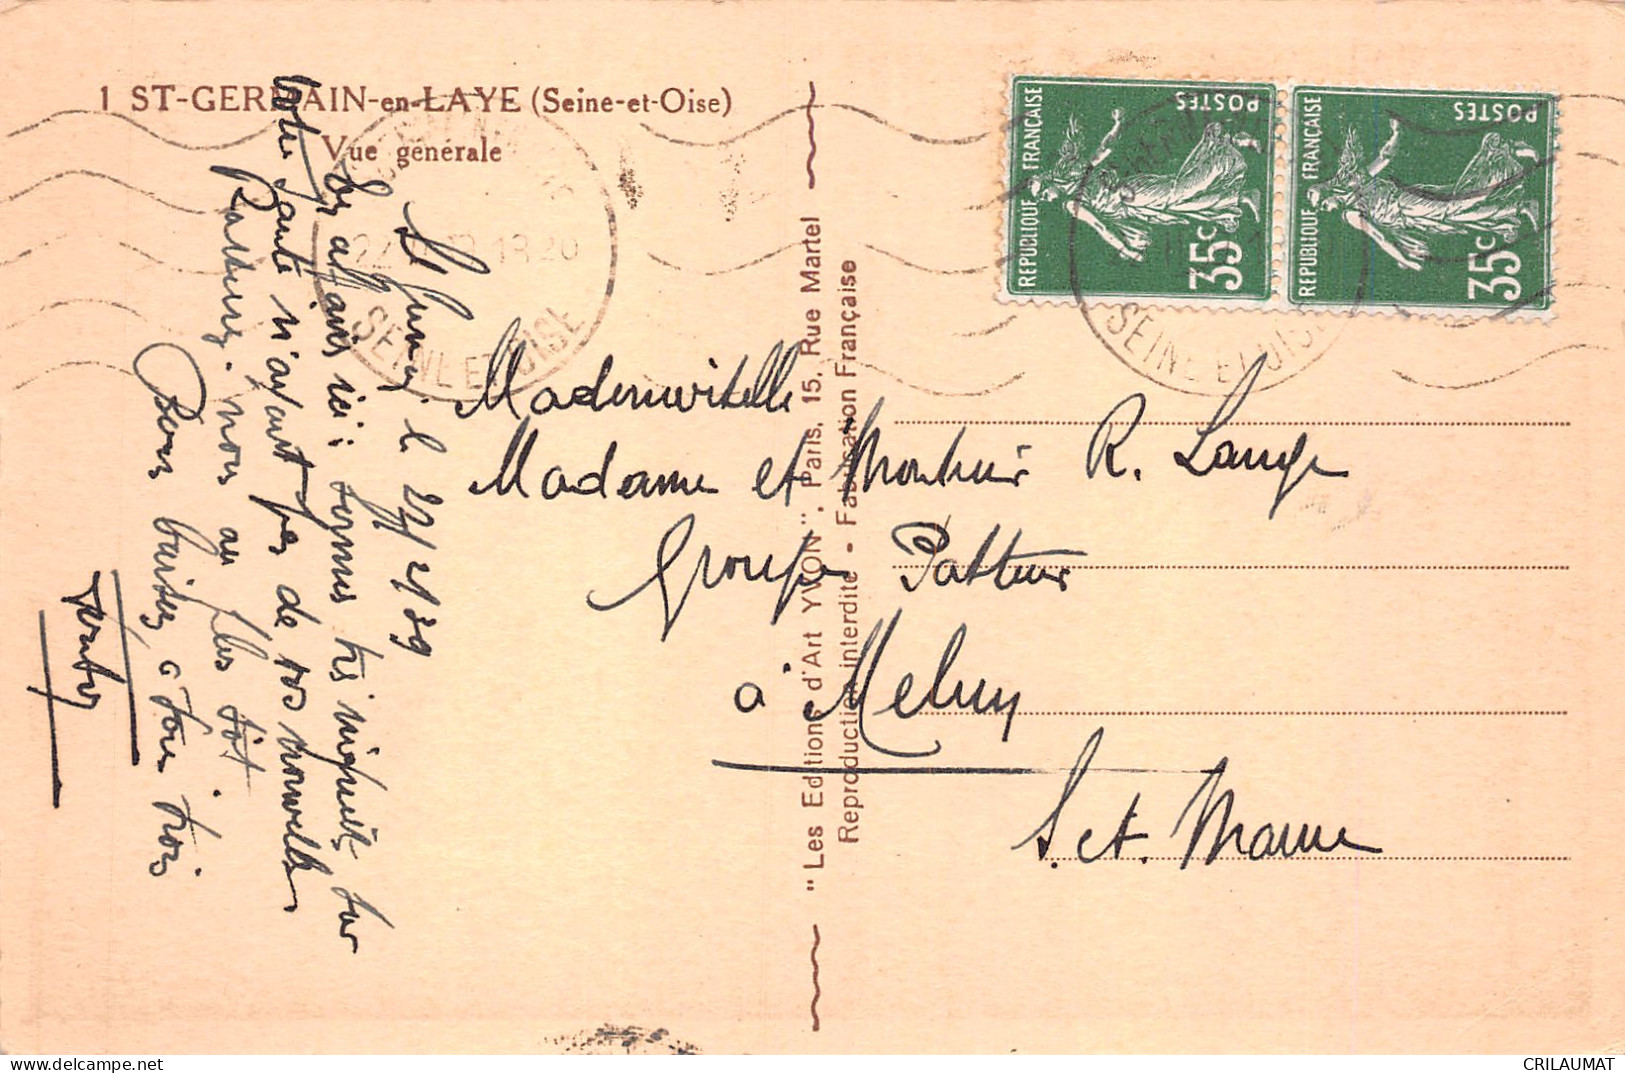 1 ST-GERMAIN-en-LAYE (Seine-et-Oise)
Vue générale
St Germain le 27/2/39
Les affaires ici: sommes très inquiets sur
votre santé n'ayant pas de vos nouvelles
Rassurez-nous au plus tôt
Bons baisers à tous trois
"Les Editions d'Art YVON", Paris, 15, Rue Martel
Reproduction interdite - Fabrication Française
REPUBLIQUE FRANÇAISE
POSTES
35c
REPUBLIQUE FRANÇAISE
POSTES
35c
18 20
SEINE ET OISE
SEINE ET OISE
Mademoiselle
Madame et Monsieur R. Lange
Groupe Pasteur
à Melun
S. et. Marne
delcampe.net
CRILAUMAT